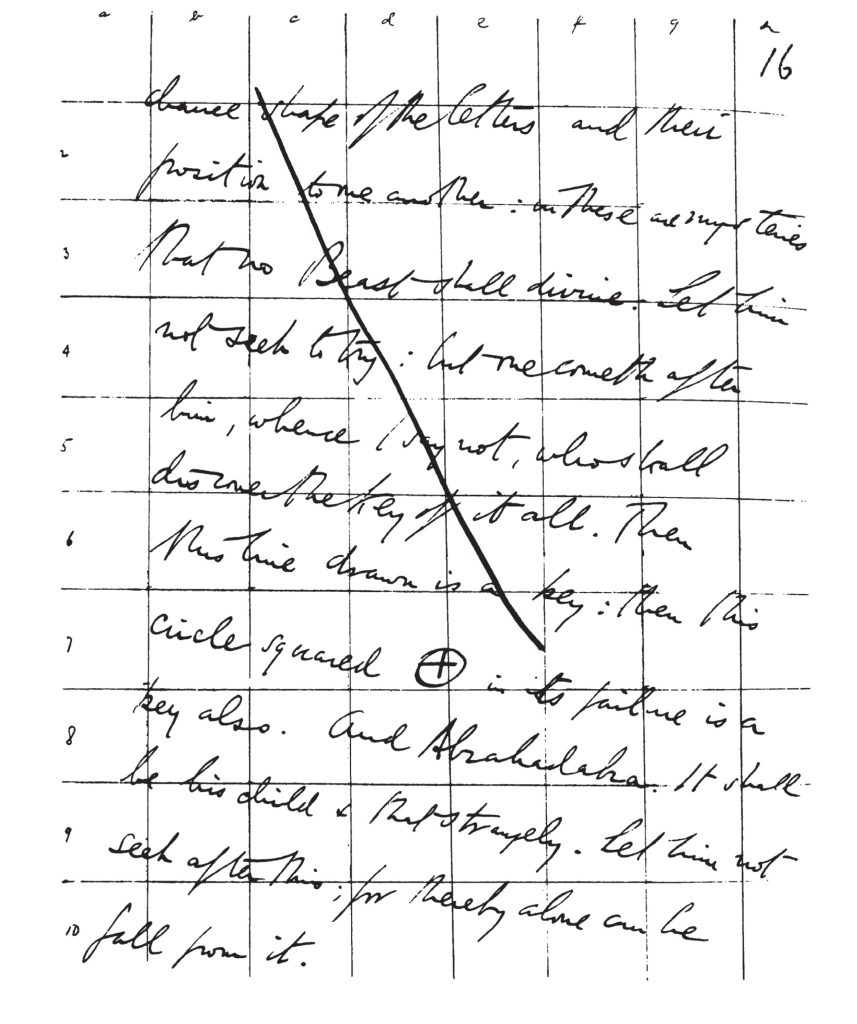 a b c d e f g h
16
chance shape of the letters and their
2
position to one another: in these are mysteries
3
that no Beast shall divine. Let him
4
not seek to try: but one cometh after
5
him, whence I say not, who shall
discover the key of it all. Then
6
this line drawn is a key: then this
7
circle squared ⊕ in its failure is a
key also. And Abrahadabra. It shall
8
be his child & that strangely. Let him not
9
seek after this; for thereby alone can he
10
fall from it.